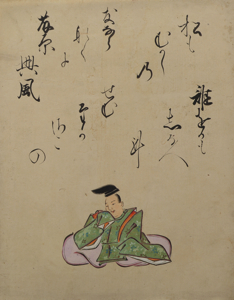 誰をかも
しる
人
に
せむ
たか
さこ
の
松も
むかし
乃
友
なら
なく
に
藤原興風